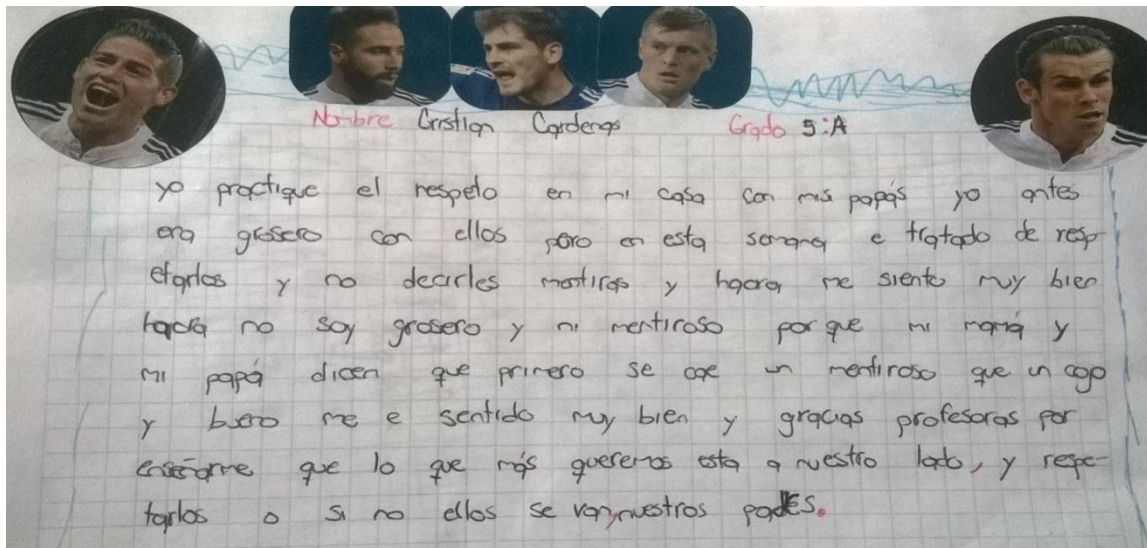 Nombre Cristian Cardenas Grado 5:A
yo practique el respeto en mi casa con mis papás yo antes
era grosero con ellos pero en esta semana e tratado de resp
etarlos y no decirles mentiras y haora me siento muy bien
haora no soy grosero y ni mentiroso por que mi mamá y
mi papá dicen que primero se cae un mentiroso que un cojo
y bueno me e sentido muy bien y gracias profesoras por
enseñarme que lo que más queremos esta a nuestro lado, y respe-
tarlos o si no ellos se van, nuestros padres.